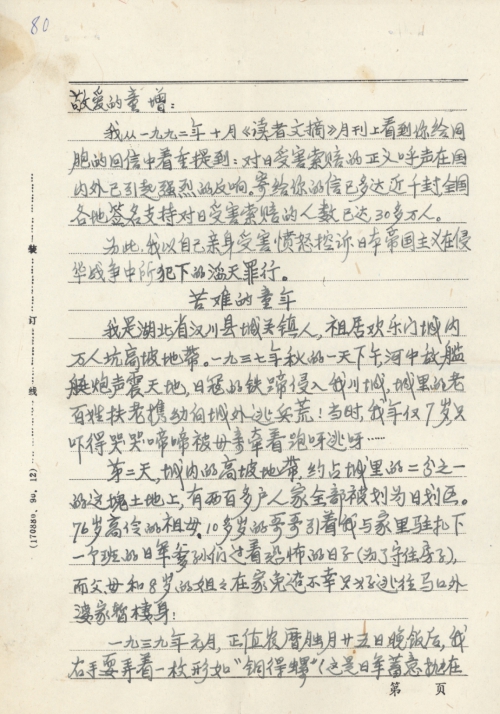 80
敬爱的童增：
我从一九九二年十月《读者文摘》月刊上看到你给同
胞的回信中着重提到：对日受害索赔的正义呼声在国
内外已引起强烈的反响。寄给你的信已多达近千封全国
各地签名支持对日受害索赔的人数已达30多万人。
为此，我以自己亲身受害愤怒控诉日本帝国主义在侵
华战争中所犯下的滔天罪行。
苦难的童年
我是湖北省汉川县城关镇人，祖居欢乐门城内
万人坑高坡地带。一九三七年秋的一天下午河中敌舰
艇炮声震天地，日冠的铁蹄侵入我川城，城里的老
百姓扶老携幼向城外逃兵荒！当时，我年仅7岁，只
吓得哭哭啼啼被母亲牵着跑呀逃呀……
第二天，城内的高坡地带，约占城里的二分之一
的这块土地上，有两百多户人家全部被划为日划区。
76岁高伶的祖母、10多岁的哥哥引着我与家里驻扎下
一个班的日军爹们过着恐怖的日子（为了守住房子），
而父母和8岁的姐々在家免遭不幸只好逃往马口外
婆家暂栖身：
一九三九年元月，正值农历腊月廿五日晚饭后，我
右手耍弄着一枚形如“铜得螺”（这是日军蓄意抛在
装订线
(170889. 90. 12)
第 页